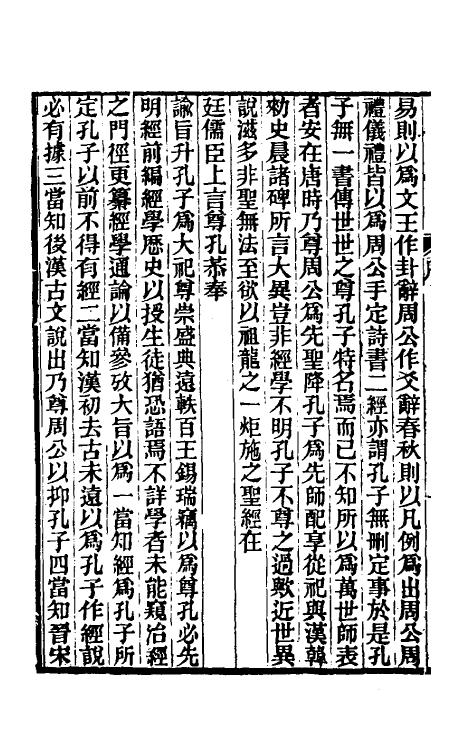 易則以爲文王作卦辭周公作爻辭春秋則以凡例爲出周公周
禮儀禮皆以爲周公手定詩書二經亦謂孔子無刪定事於是孔
子無一書傳世世之尊孔子特名焉而已不知所以爲萬世師表
者安在唐時乃尊周公爲先聖降孔子爲先師配享從祀與漢韓
勑史晨諸碑所言大異豈非經學不明孔子不尊之過歟近世異
說滋多非聖無法至欲以祖龍之一炬施之聖經在
廷儒臣上言尊孔恭奉
諭旨升孔子爲大祀尊崇盛典遠軼百王錫瑞竊以爲尊孔必先
明經前編經學歷史以授生徒猶恐語焉不詳學者未能窺治經
之門徑更纂經學通論以備參攷大旨以爲一當知經爲孔子所
定孔子以前不得有經二當知漢初去古未遠以爲孔子作經說
必有據三當知後漢古文說出乃尊周公以抑孔子四當知晉宋